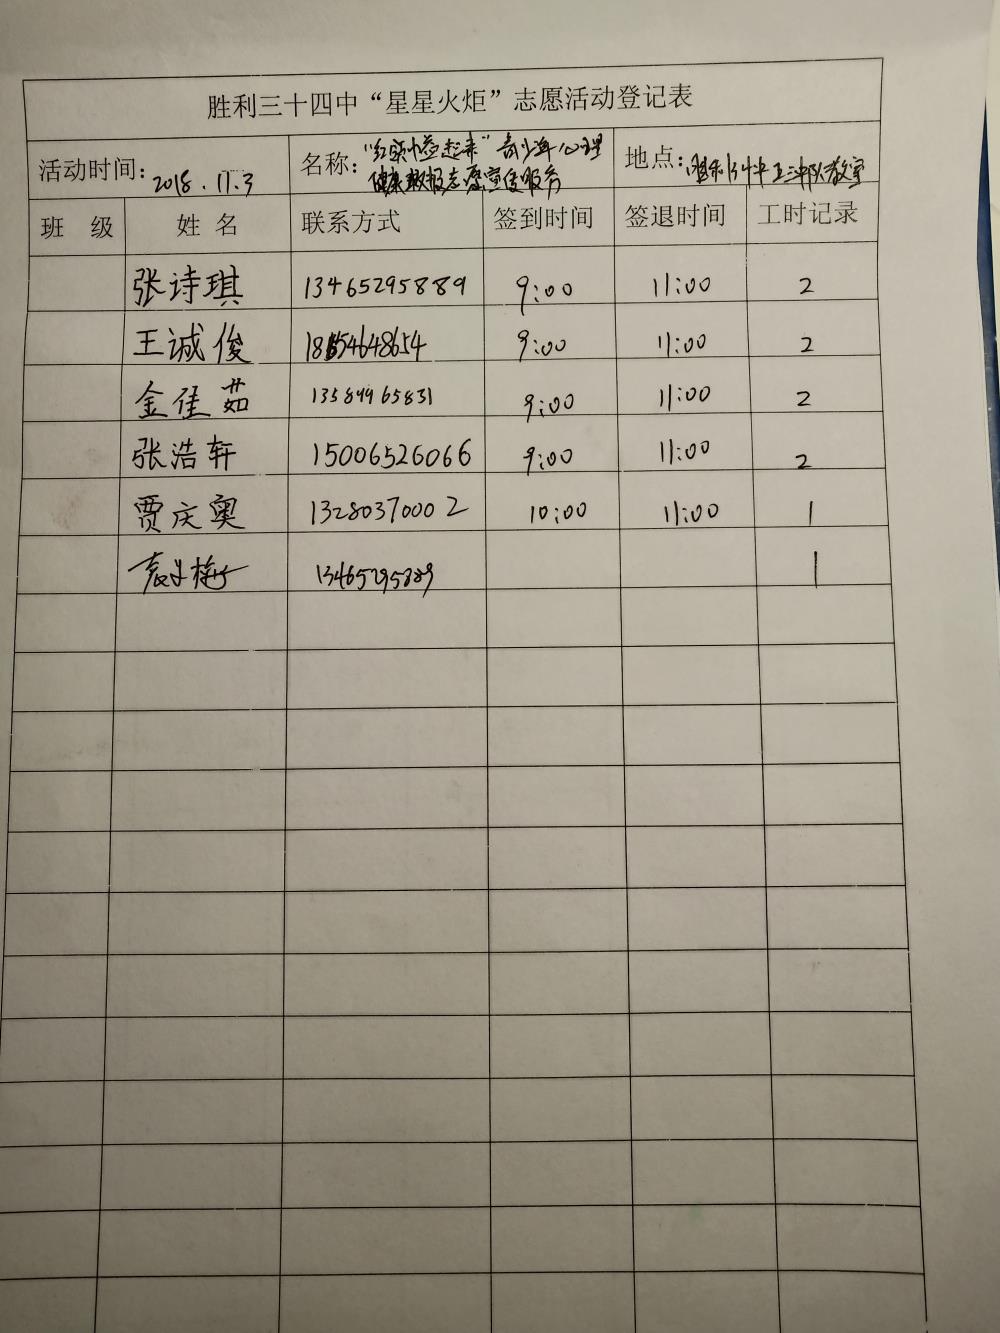 胜利三十四中“星星火炬”志愿活动登记表
活动时间: 2018.11.3 名称: “红领巾益起来”青少年心理 地点:
健康 志愿宣传服务
班 级 姓 名 联系方式 签到时间 签退时间 工时记录
张诗琪 13465295889 9:00 11:00 2
王诚俊 9:00 11:00 2
金佳茹 13589965831 9:00 11:00 2
张浩轩 15006526066 9:00 11:00 2
贾庆奥 13280370002 10:00 11:00 1
13465295889 1